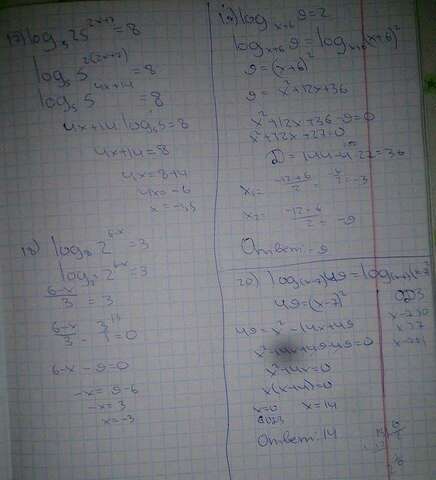 17) log₅25^(2x+7)=8
log₅5^(2(2x+7))=8
log₅5^(4x+14)=8
4x+14 log₅5=8
4x+14=8
4x=8+14
4x=-6
x=-1,5
18) log₈2^(6-x)=3
2^(6-x)=3
(6-x)/3=3
6-x-9=0
-x=9-6
-x=3
x=-3
19) log_(x+6) 9=2
log_(x+6) 9=log_(x+6)(x+6)²
9=(x+6)²
9=x²+12x+36
x²+12x+36-9=0
x²+12x+27=0
x₁=(-12+6)/2=-3
x₂=(-12-6)/2=-9
Ответ: -9
20) log_(x-7)49=log_(x-7)(x-7)²
49=(x-7)²
49=x²-14x+49
x²-14x+49-49=0
x²+4x=0
x(x+4)=0
x=0 x=14
Ответ: 14
ОДЗ
x-7>0
x>7